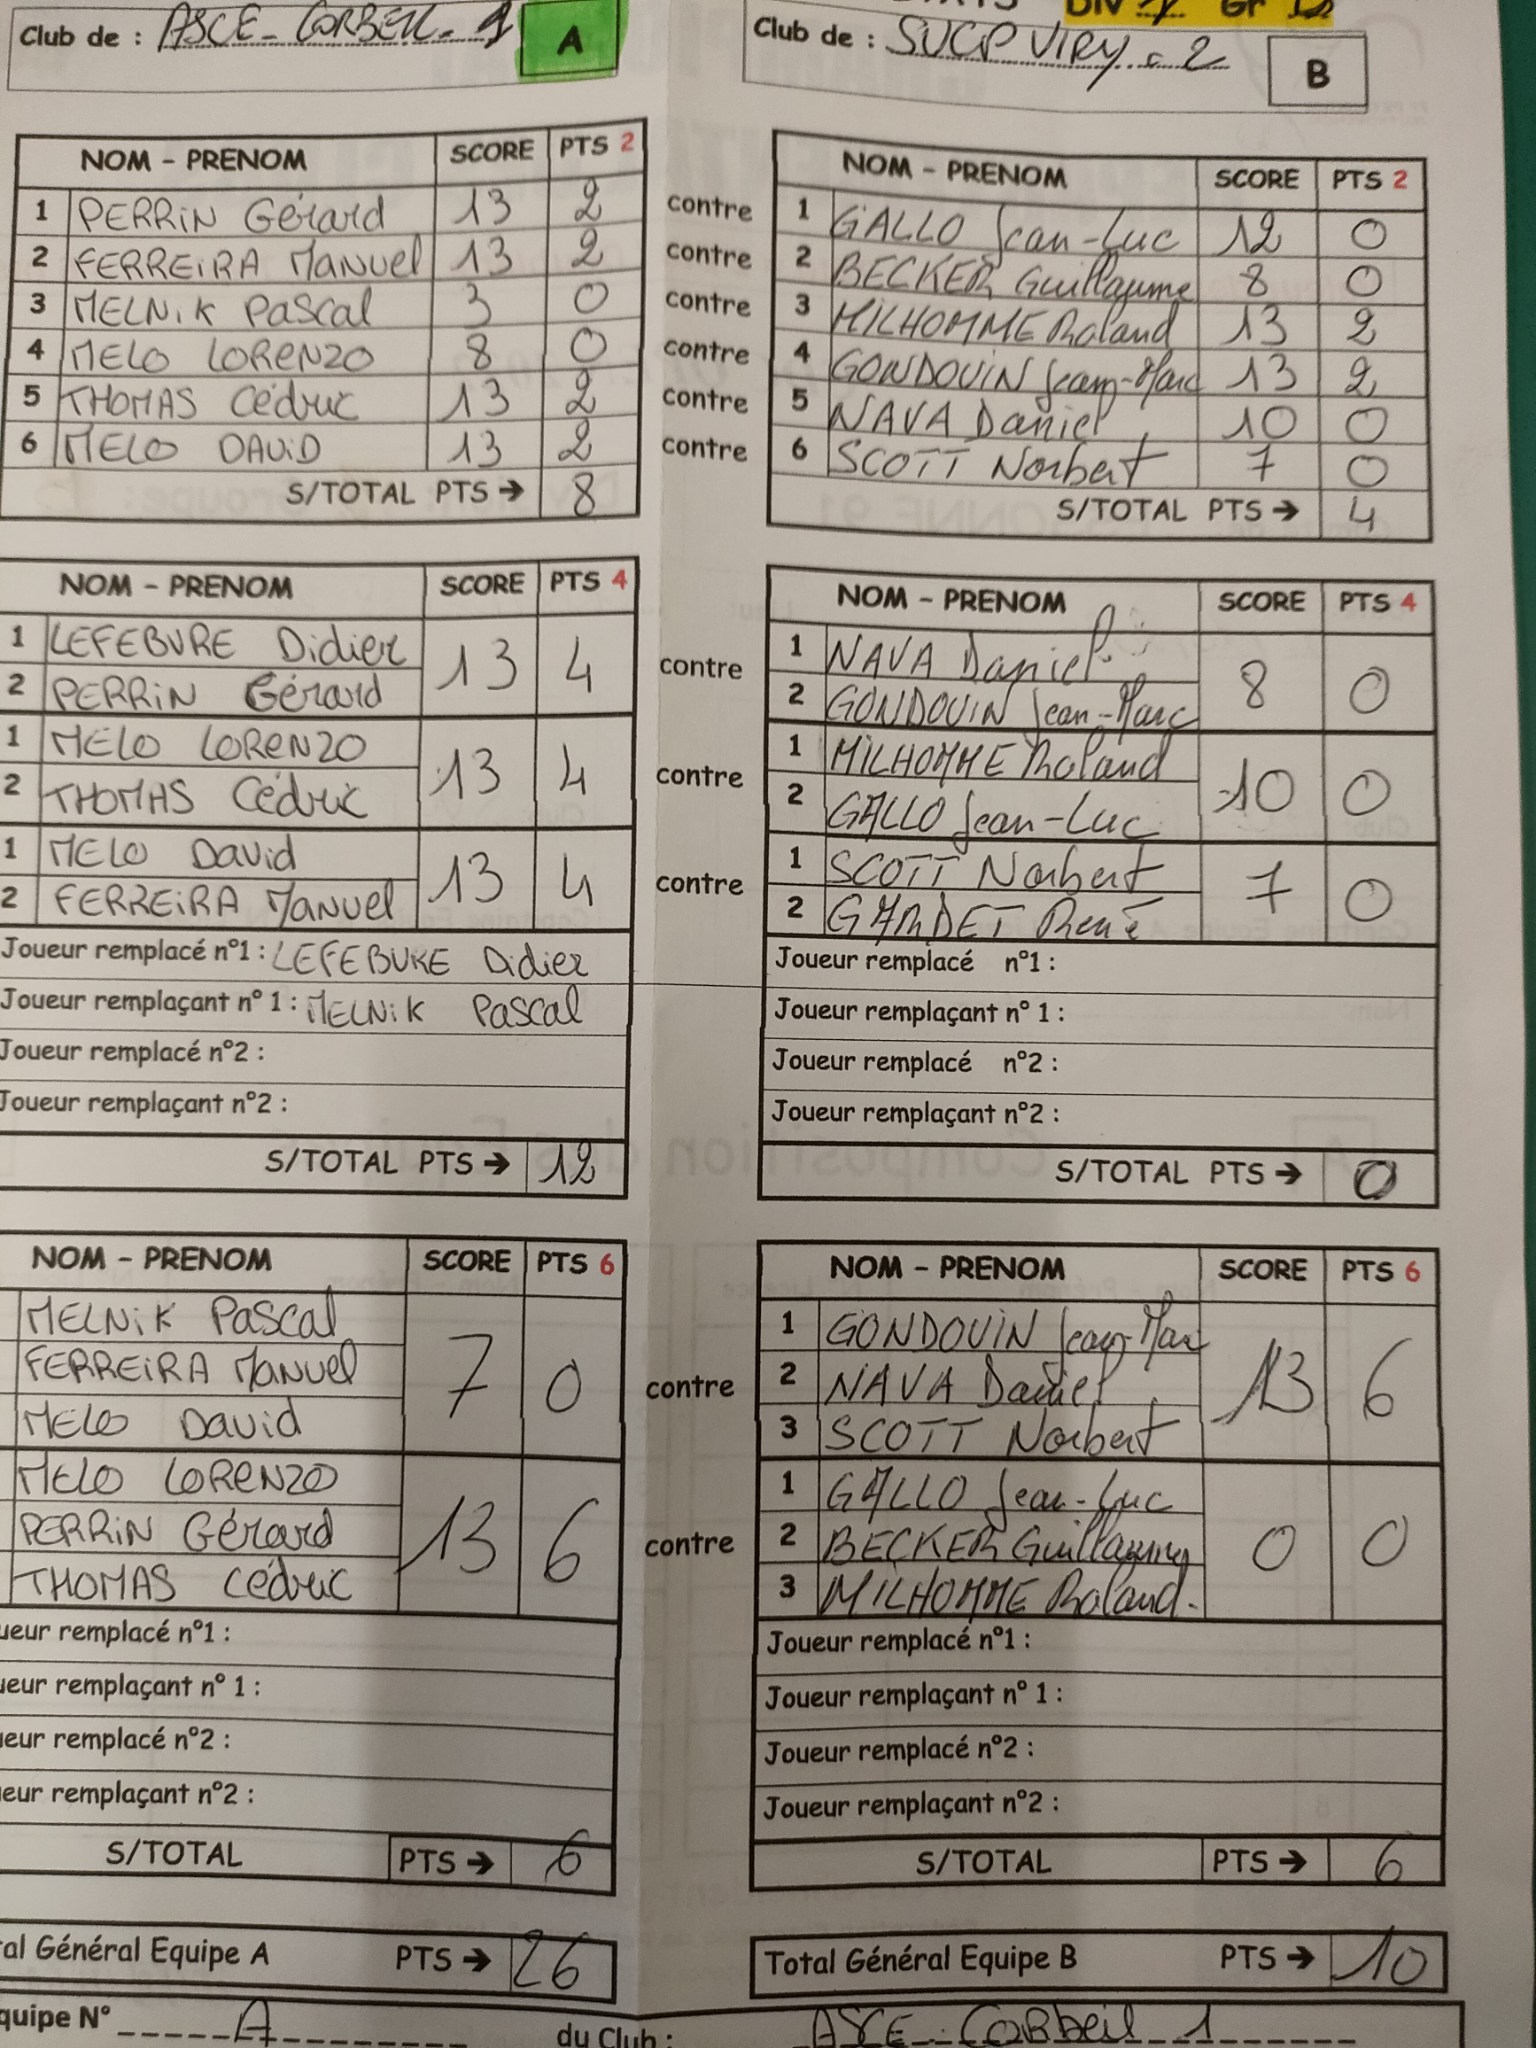 Club de : ASCE - CORBEIL - 1 A
Club de : SUCP VIRY - 2 B
DIV Gr
NOM - PRENOM SCORE PTS 2
1 PERRIN Gérard 13 2
2 FERREIRA Manuel 13 2
3 MELNIK Pascal 3 0
4 MELO LORENZO 8 0
5 THOMAS Cédric 13 2
6 MELO DAVID 13 2
S/TOTAL PTS → 8
contre
contre
contre
contre
contre
contre
NOM - PRENOM SCORE PTS 2
1 GALLO Jean-Luc 12 0
2 BECKER Guillaume 8 0
3 MILHOMME Roland 13 2
4 GONDOUIN Jean-Marc 13 2
5 NAVA Daniel 10 0
6 SCOTT Norbert 7 0
S/TOTAL PTS → 4
NOM - PRENOM SCORE PTS 4
1 LEFEBURE Didier 13 4
2 PERRIN Gérard
1 MELO LORENZO 13 4
2 THOMAS Cédric
1 MELO David 13 4
2 FERREIRA Manuel
Joueur remplacé n°1 : LEFEBURE Didier
Joueur remplaçant n° 1 : MELNIK Pascal
Joueur remplacé n°2 :
Joueur remplaçant n°2 :
S/TOTAL PTS → 12
contre
contre
contre
NOM - PRENOM SCORE PTS 4
1 NAVA Daniel 8 0
2 GONDOUIN Jean-Marc
1 MILHOMME Roland 10 0
2 GALLO Jean-Luc
1 SCOTT Norbert 7 0
2 GARDET René
Joueur remplacé n°1 :
Joueur remplaçant n° 1 :
Joueur remplacé n°2 :
Joueur remplaçant n°2 :
S/TOTAL PTS → 0
NOM - PRENOM SCORE PTS 6
MELNIK Pascal 7 0
FERREIRA Manuel
MELO David
MELO LORENZO 13 6
PERRIN Gérard
THOMAS Cédric
ueur remplacé n°1 :
ueur remplaçant n° 1 :
ueur remplacé n°2 :
eur remplaçant n°2 :
S/TOTAL PTS → 6
contre
contre
NOM - PRENOM SCORE PTS 6
1 GONDOUIN Jean-Marc 13 6
2 NAVA Daniel
3 SCOTT Norbert
1 GALLO Jean-Luc 0 0
2 BECKER Guillaume
3 MILHOMME Roland.
Joueur remplacé n°1 :
Joueur remplaçant n° 1 :
Joueur remplacé n°2 :
Joueur remplaçant n°2 :
S/TOTAL PTS → 6
al Général Equipe A PTS → 26
Total Général Equipe B PTS → 10
quipe N° A du Club : ASCE - CORBeil 1